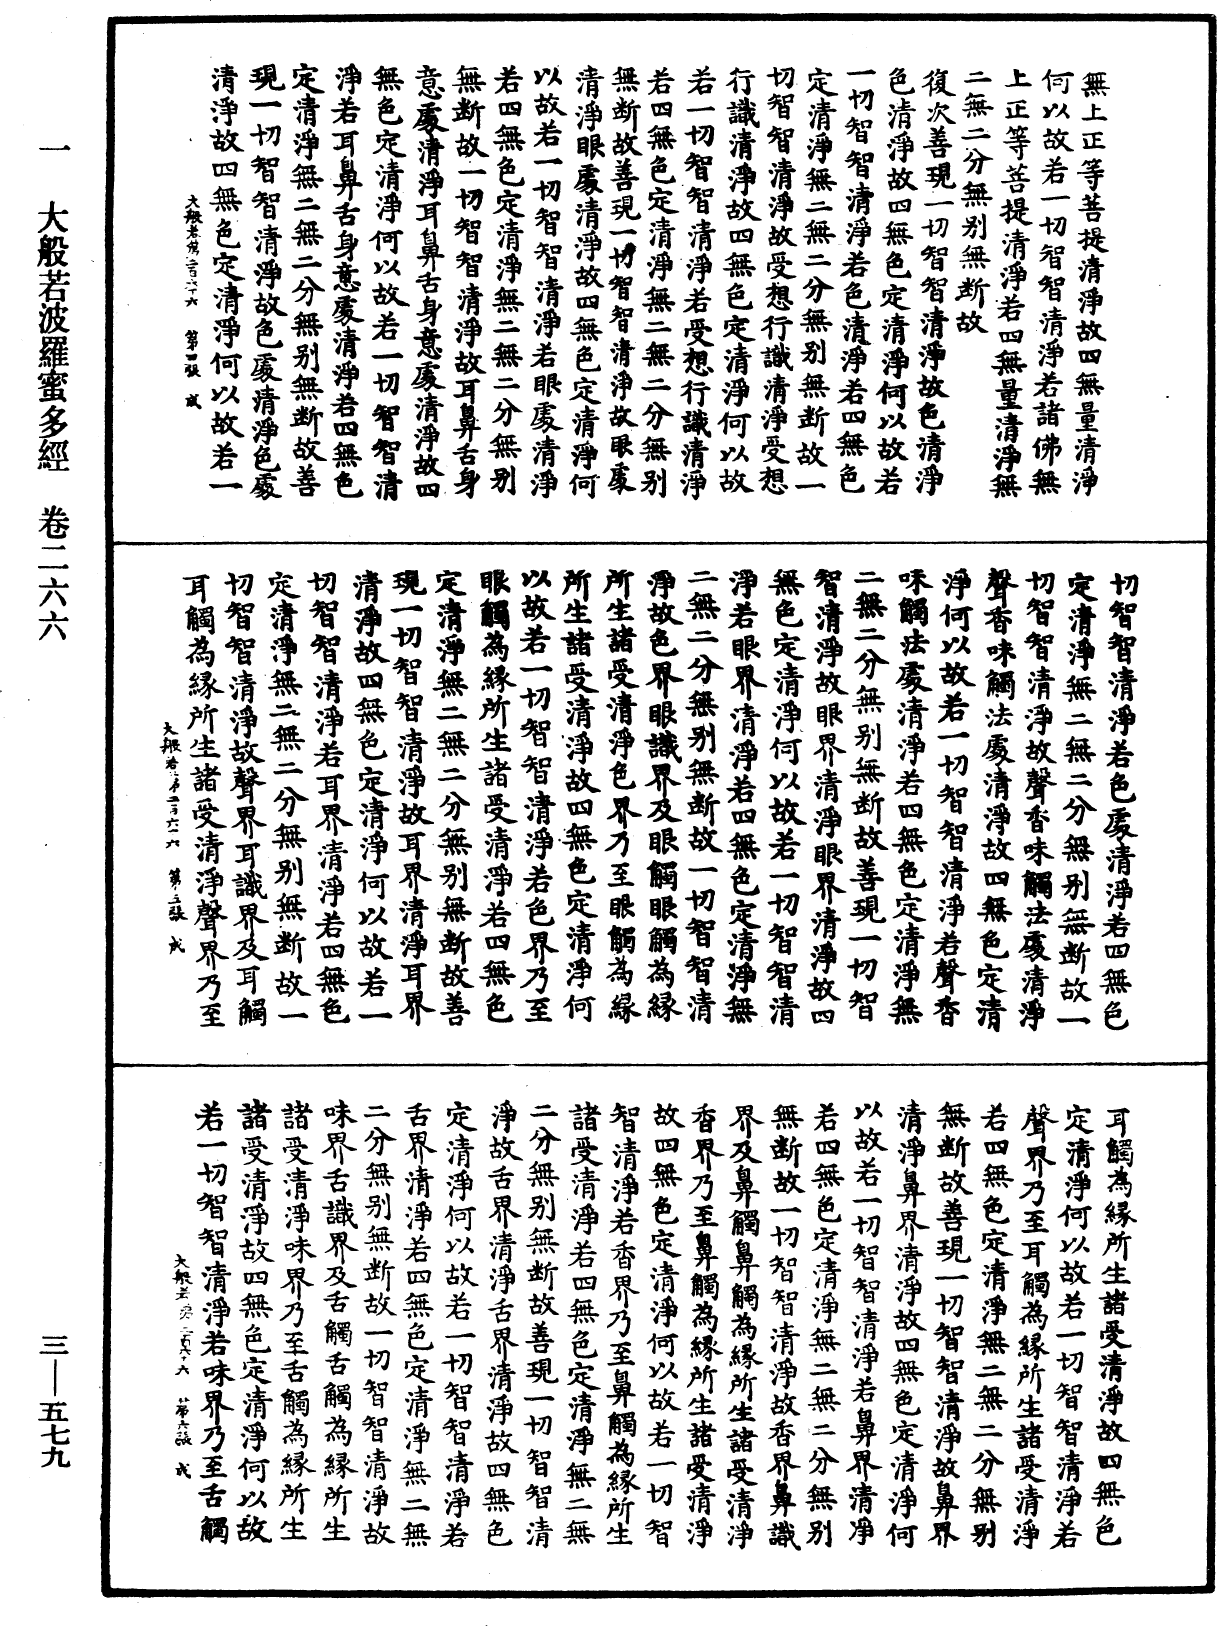 無上正等菩提清淨故四無量清淨
何以故若一切智智清淨若諸佛無
上正等菩提清淨若四無量清淨無
二無二分無别無断故
復次善現一切智智清淨故色清淨
色清淨故四無色定清淨何以故若
一切智智清淨若色清淨若四無色
定清淨無二無二分無别無断故一
切智智清淨故受想行識清淨受想
行識清淨故四無色定清淨何以故
若一切智智清淨若受想行識清淨
若四無色定清淨無二無二分無别
無断故善現一切智智清淨故眼處
清淨眼處清淨故四無色定清淨何
以故若一切智智清淨若眼處清淨
若四無色定清淨無二無二分無别
無断故一切智智清淨故耳鼻舌身
意處清淨耳鼻舌身意處清淨故四
無色定清淨何以故若一切智智清
淨若耳鼻舌身意處清淨若四無色
定清淨無二無二分無别無断故善
現一切智智清淨故色處清淨色處
清淨故四無色定清淨何以故若一
大般若第二百六十六 第四張 成
切智智清淨若色處清淨若四無色
定清淨無二無二分無别無断故一
切智智清淨故聲香味觸法處清淨
聲香味觸法處清淨故四無色定清
淨何以故若一切智智清淨若聲香
味觸法處清淨若四無色定清淨無
二無二分無别無断故善現一切智
智清淨故眼界清淨眼界清淨故四
無色定清淨何以故若一切智智清
淨若眼界清淨若四無色定清淨無
二無二分無别無断故一切智智清
淨故色界眼識界及眼觸眼觸為縁
所生諸受清淨色界乃至眼觸為縁
所生諸受清淨故四無色定清淨何
以故若一切智智清淨若色界乃至
眼觸為縁所生諸受清淨若四無色
定清淨無二無二分無别無断故善
現一切智智清淨故耳界清淨耳界
清淨故四無色定清淨何以故若一
切智智清淨若耳界清淨若四無色
定清淨無二無二分無别無断故一
切智智清淨故聲界耳識界及耳觸
耳觸為縁所生諸受清淨聲界乃至
大般若第二百六十六 第五張 成
耳觸為縁所生諸受清淨故四無色
定清淨何以故若一切智智清淨若
聲界乃至耳觸為縁所生諸受清淨
若四無色定清淨無二無二分無别
無断故善現一切智智清淨故鼻界
清淨鼻界清淨故四無色定清淨何
以故若一切智智清淨若鼻界清淨
若四無色定清淨無二無二分無别
無断故一切智智清淨故香界鼻識
界及鼻觸鼻觸為縁所生諸受清淨
香界乃至鼻觸為縁所生諸受清淨
故四無色定清淨何以故若一切智
智清淨若香界乃至鼻觸為縁所生
諸受清淨若四無色定清淨無二無
二分無别無断故善現一切智智清
淨故舌界清淨舌界清淨故四無色
定清淨何以故若一切智智清淨若
舌界清淨若四無色定清淨無二無
二分無别無断故一切智智清淨故
味界舌識界及舌觸舌觸為縁所生
諸受清淨味界乃至舌觸為縁所生
諸受清淨故四無色定清淨何以故
若一切智智清淨若味界乃至舌觸
大般若 二百六十六 第六張 成
一 大般若波羅蜜多經 卷二六六
三—五七九